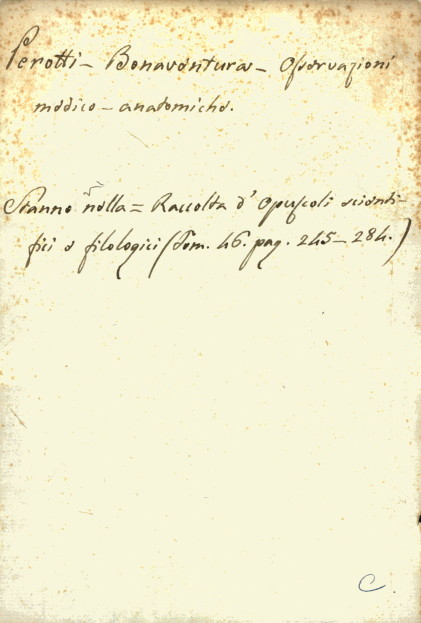 Perotti - Bonaventura - Osservazioni
medico - anatomiche.
Stanno nella = Raccolta d'Opuscoli scienti-
fici e filologici (Tom. 46. pag. 245 - 284.)
C.